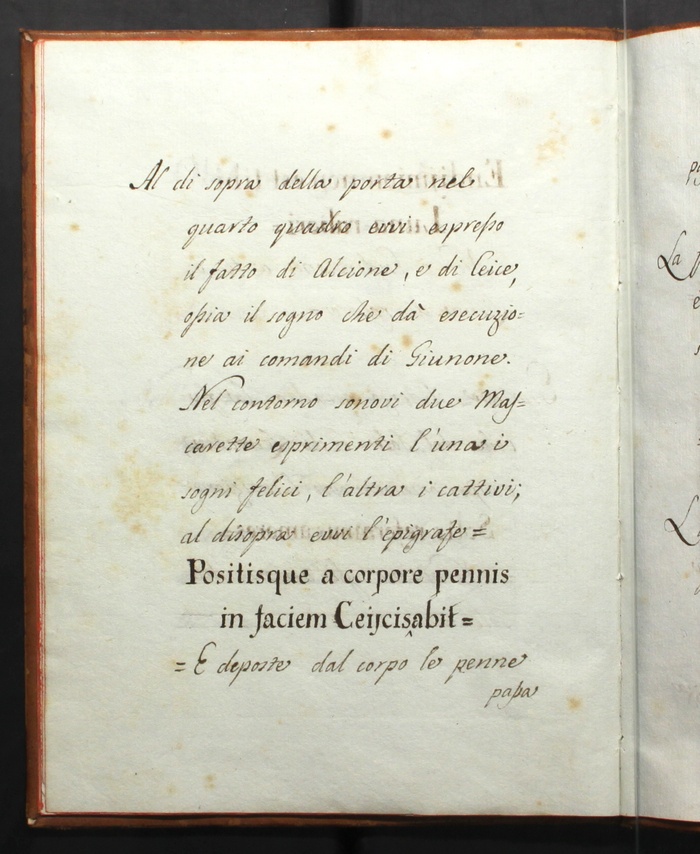 Al di sopra della porta nel
quarto quadro evvi espresso
il fatto di Alcione, e di Ceice,
ossia il sogno che dà esecuzio=
ne ai comandi di Giunone.
Nel contorno sonovi due Mas=
carette esprimenti l'una i
sogni felici, l'altra i cattivi;
al disopra evvi l'epigrafe =
Positisque a corpore pennis
in faciem Ceijcis‸abit =
= E deposte dal corpo le penne
passa
La